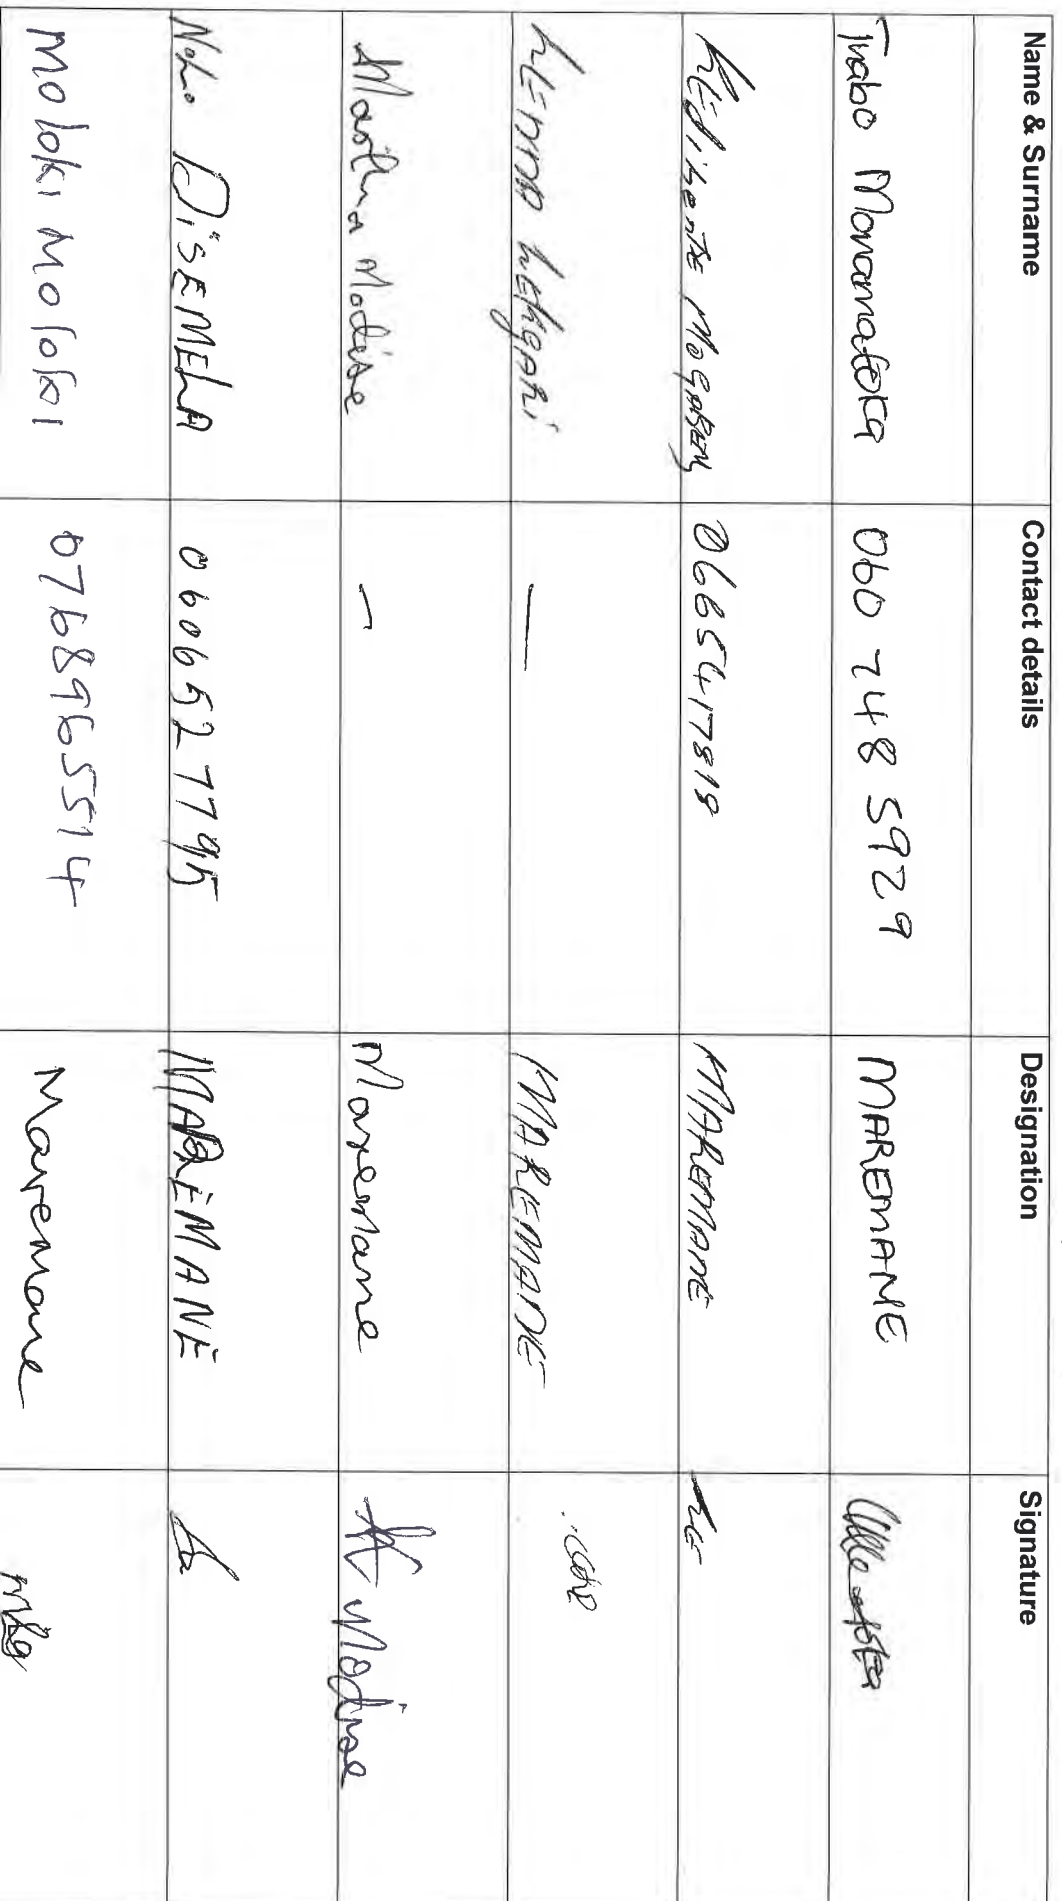 Name & Surname Contact details Designation Signature
Thabo Monamatoka 060 748 5929 MAREMANE
0665417818 MAREMANE
KENOD — MAREMANE
Martha Modise — Maremane Modise
DiSEMELA 0606527795 MAREMANE
Moloki Moloki 0768965514 Maremane